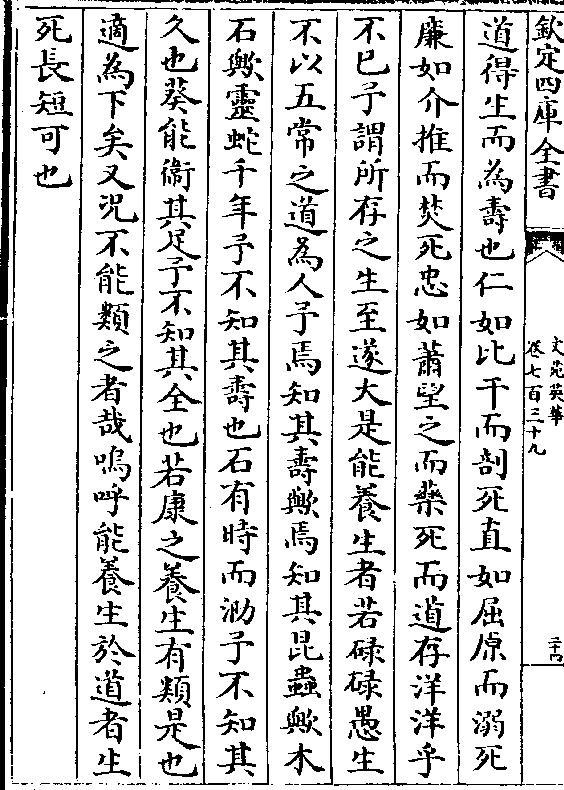 欽定四庫全書
文苑英華
卷七百三十九
二十四
道得生而為壽也仁如比干而剖死直如屈原而溺死
廉如介推而焚死忠如蕭望之而藥死而道存洋洋乎
不已予謂所存之生至遂大是能養生者若碌碌愚生
不以五常之道為人予焉知其壽歟焉知其昆蟲歟木
石歟靈蛇千年予不知其壽也石有時而泐予不知其
久也葵能衞其足予不知其全也若康之養生有類是也
適為下矣又況不能類之者哉嗚呼能養生於道者生
死長短可也